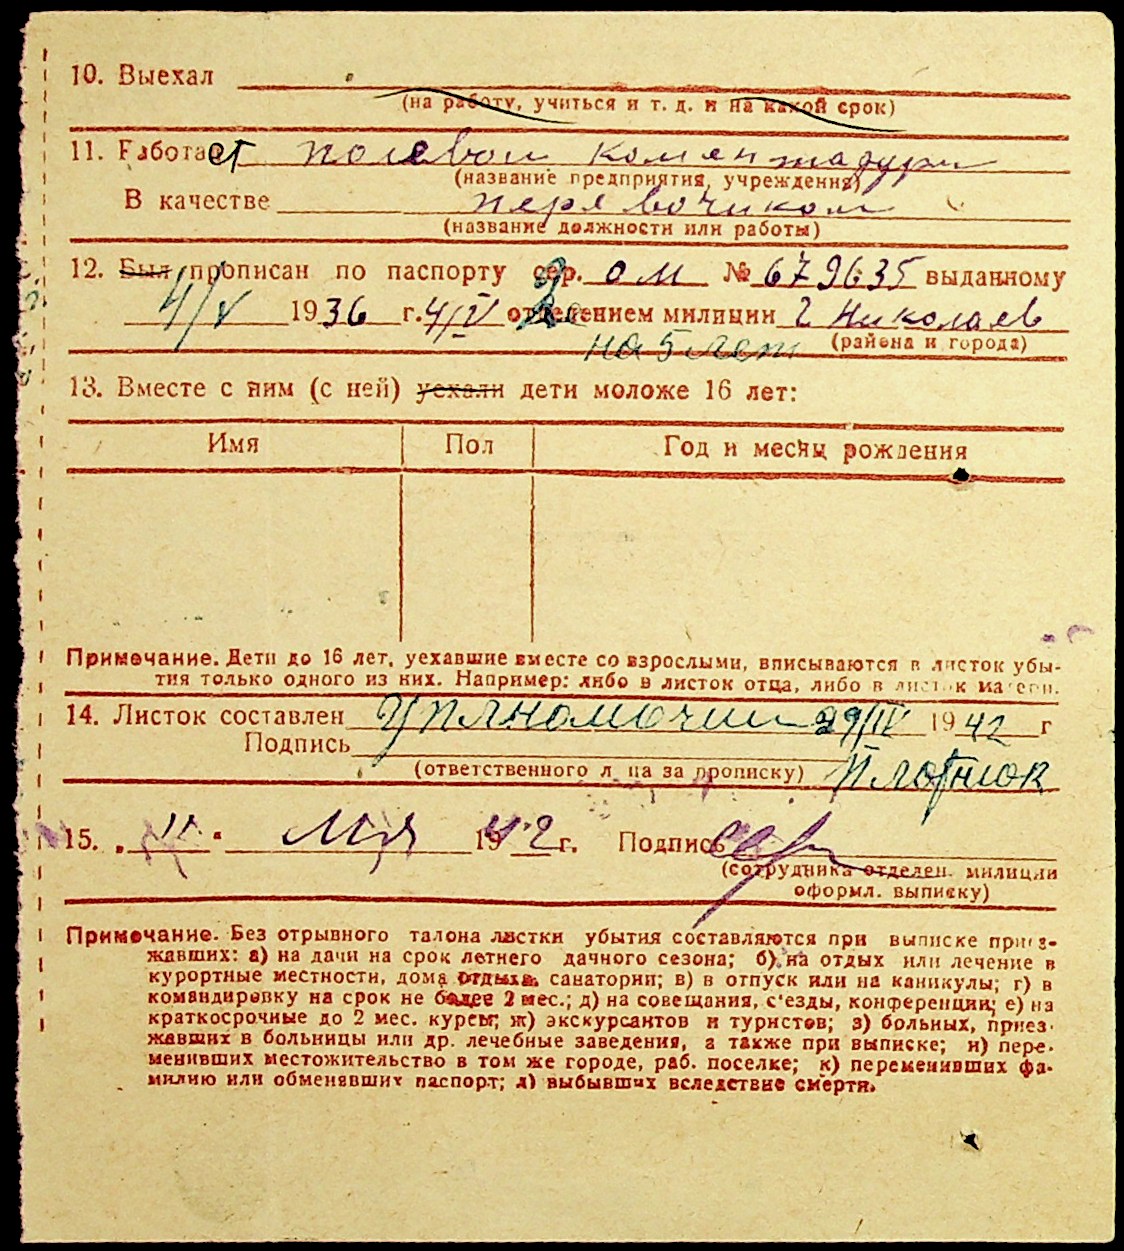 10. Выехал
(на работу, учиться и т. д. и на какой срок)
11. Работает полевой комендатури
(название предприятия, учреждения)
В качестве переводчиком
(название должности или работы)
12. Был прописан по паспорту сер. ом № 679635 выданному
4/V 1936 г. 4/IV отделением милиции г Николаев
на 5 лет (района и города)
13. Вместе с ним (с ней) уехали дети моложе 16 лет:
Имя Пол Год и месяц рождения
Примечание. Дети до 16 лет, уехавшие вместе со взрослыми, вписываются в листок убы-
тия только одного из них. Например: либо в листок отца, либо в листок матери.
14. Листок составлен 29/IV 1942 г
Подпись
(ответственного лица за прописку) Плотнюк
15. „ 11 “ Мая 1942 г. Подпись
(сотрудника отделен. милиции
оформл. выписку)
Примечание. Без отрывного талона листки убытия составляются при выписке приез-
жавших: а) на дачи на срок летнего дачного сезона; б) на отдых или лечение в
курортные местности, дома отдыха, санатории; в) в отпуск или на каникулы; г) в
командировку на срок не более 2 мес.; д) на совещания, с'езды, конференции; е) на
краткосрочные до 2 мес. курсы; ж) экскурсантов и туристов; з) больных, приез-
жавших в больницы или др. лечебные заведения, а также при выписке; и) пере-
менивших местожительство в том же городе, раб. поселке; к) переменивших фа-
милию или обменявших паспорт; л) выбывших вследствие смерти.